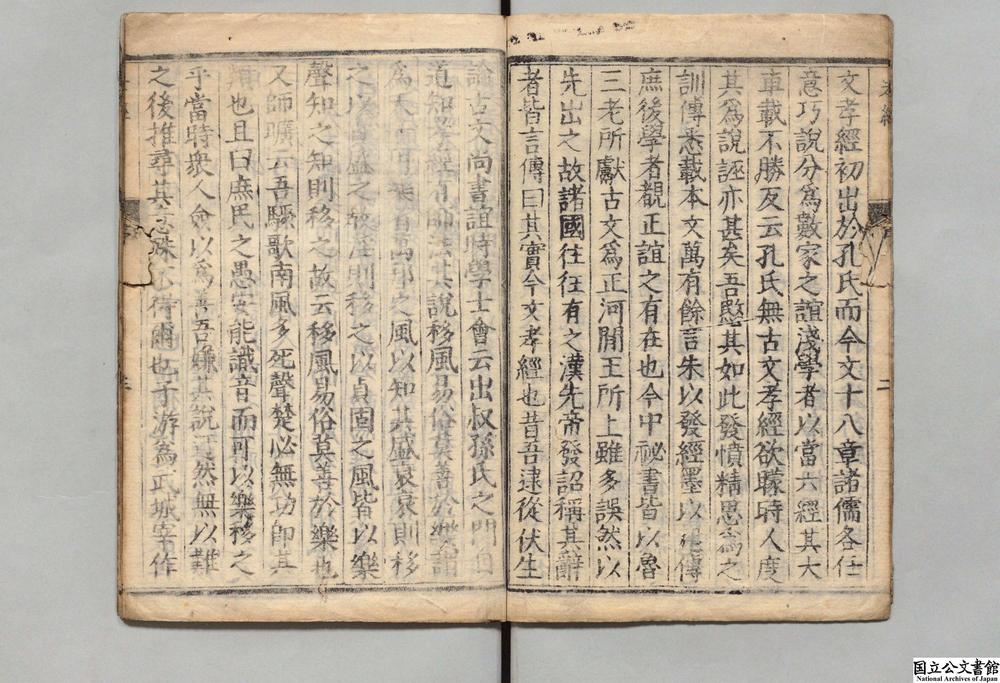 文孝經初出於孔氏而今文十八章諸儒各任
意巧說分爲數家之誼淺學者以當六經其大
車載不勝反云孔氏無古文孝經欲矇時人度
其爲說誣亦甚矣吾愍其如此發憤精思爲之
訓傳悉載本文萬有餘言朱以發經墨以起傳
庶後學者覩正誼之有在也今中祕書皆以魯
三老所獻古文爲正河間王所上雖多誤然以
先出之故諸國往往有之漢先帝發詔稱其辭
者皆言傳曰其實今文孝經也昔吾逮從伏生
論古文尚書誼時學士會云出叔孫氏之門自
道知孝經有師法其說移風易俗莫善於樂謂
爲天子用樂省萬邦之風以知其盛衰衰則移
之以貞盛之教淫則移之以貞固之風皆以樂
聲知之知則移之故云移風易俗莫善於樂也
又師曠云吾驟歌南風多死聲楚必無功即其
類也且曰庶民之愚安能識音而可以樂移之
乎當時衆人僉以爲善吾嫌其說迂然無以難
之後推尋其意殊不得爾也子游爲武城宰作
二
三
国立公文書館
National Archives of Japan